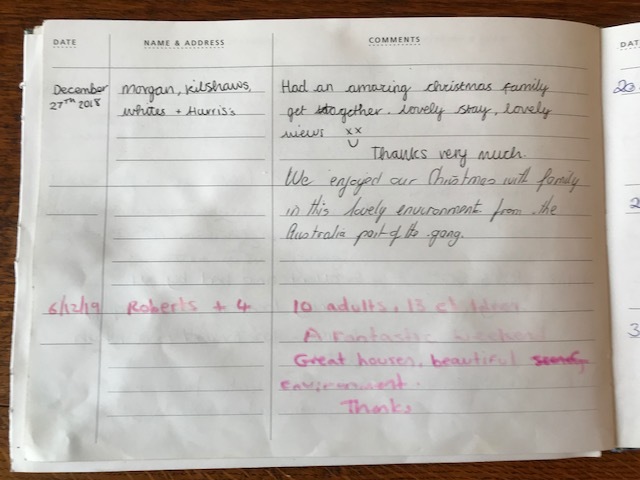 DATE NAME & ADDRESS COMMENTS DAT
December Morgan, Kilshaws, Had an amazing christmas family
27TH 2018 Whites + Harris's get together. Lovely stay, lovely
views xx
Thanks very much.
We enjoyed our Christmas with family
in this lovely environment from the
Australia part of the gang.
6/12/19 Roberts + 4 10 adults, 13 children
A Fantastic weekend
Great houses, beautiful
environment.
Thanks